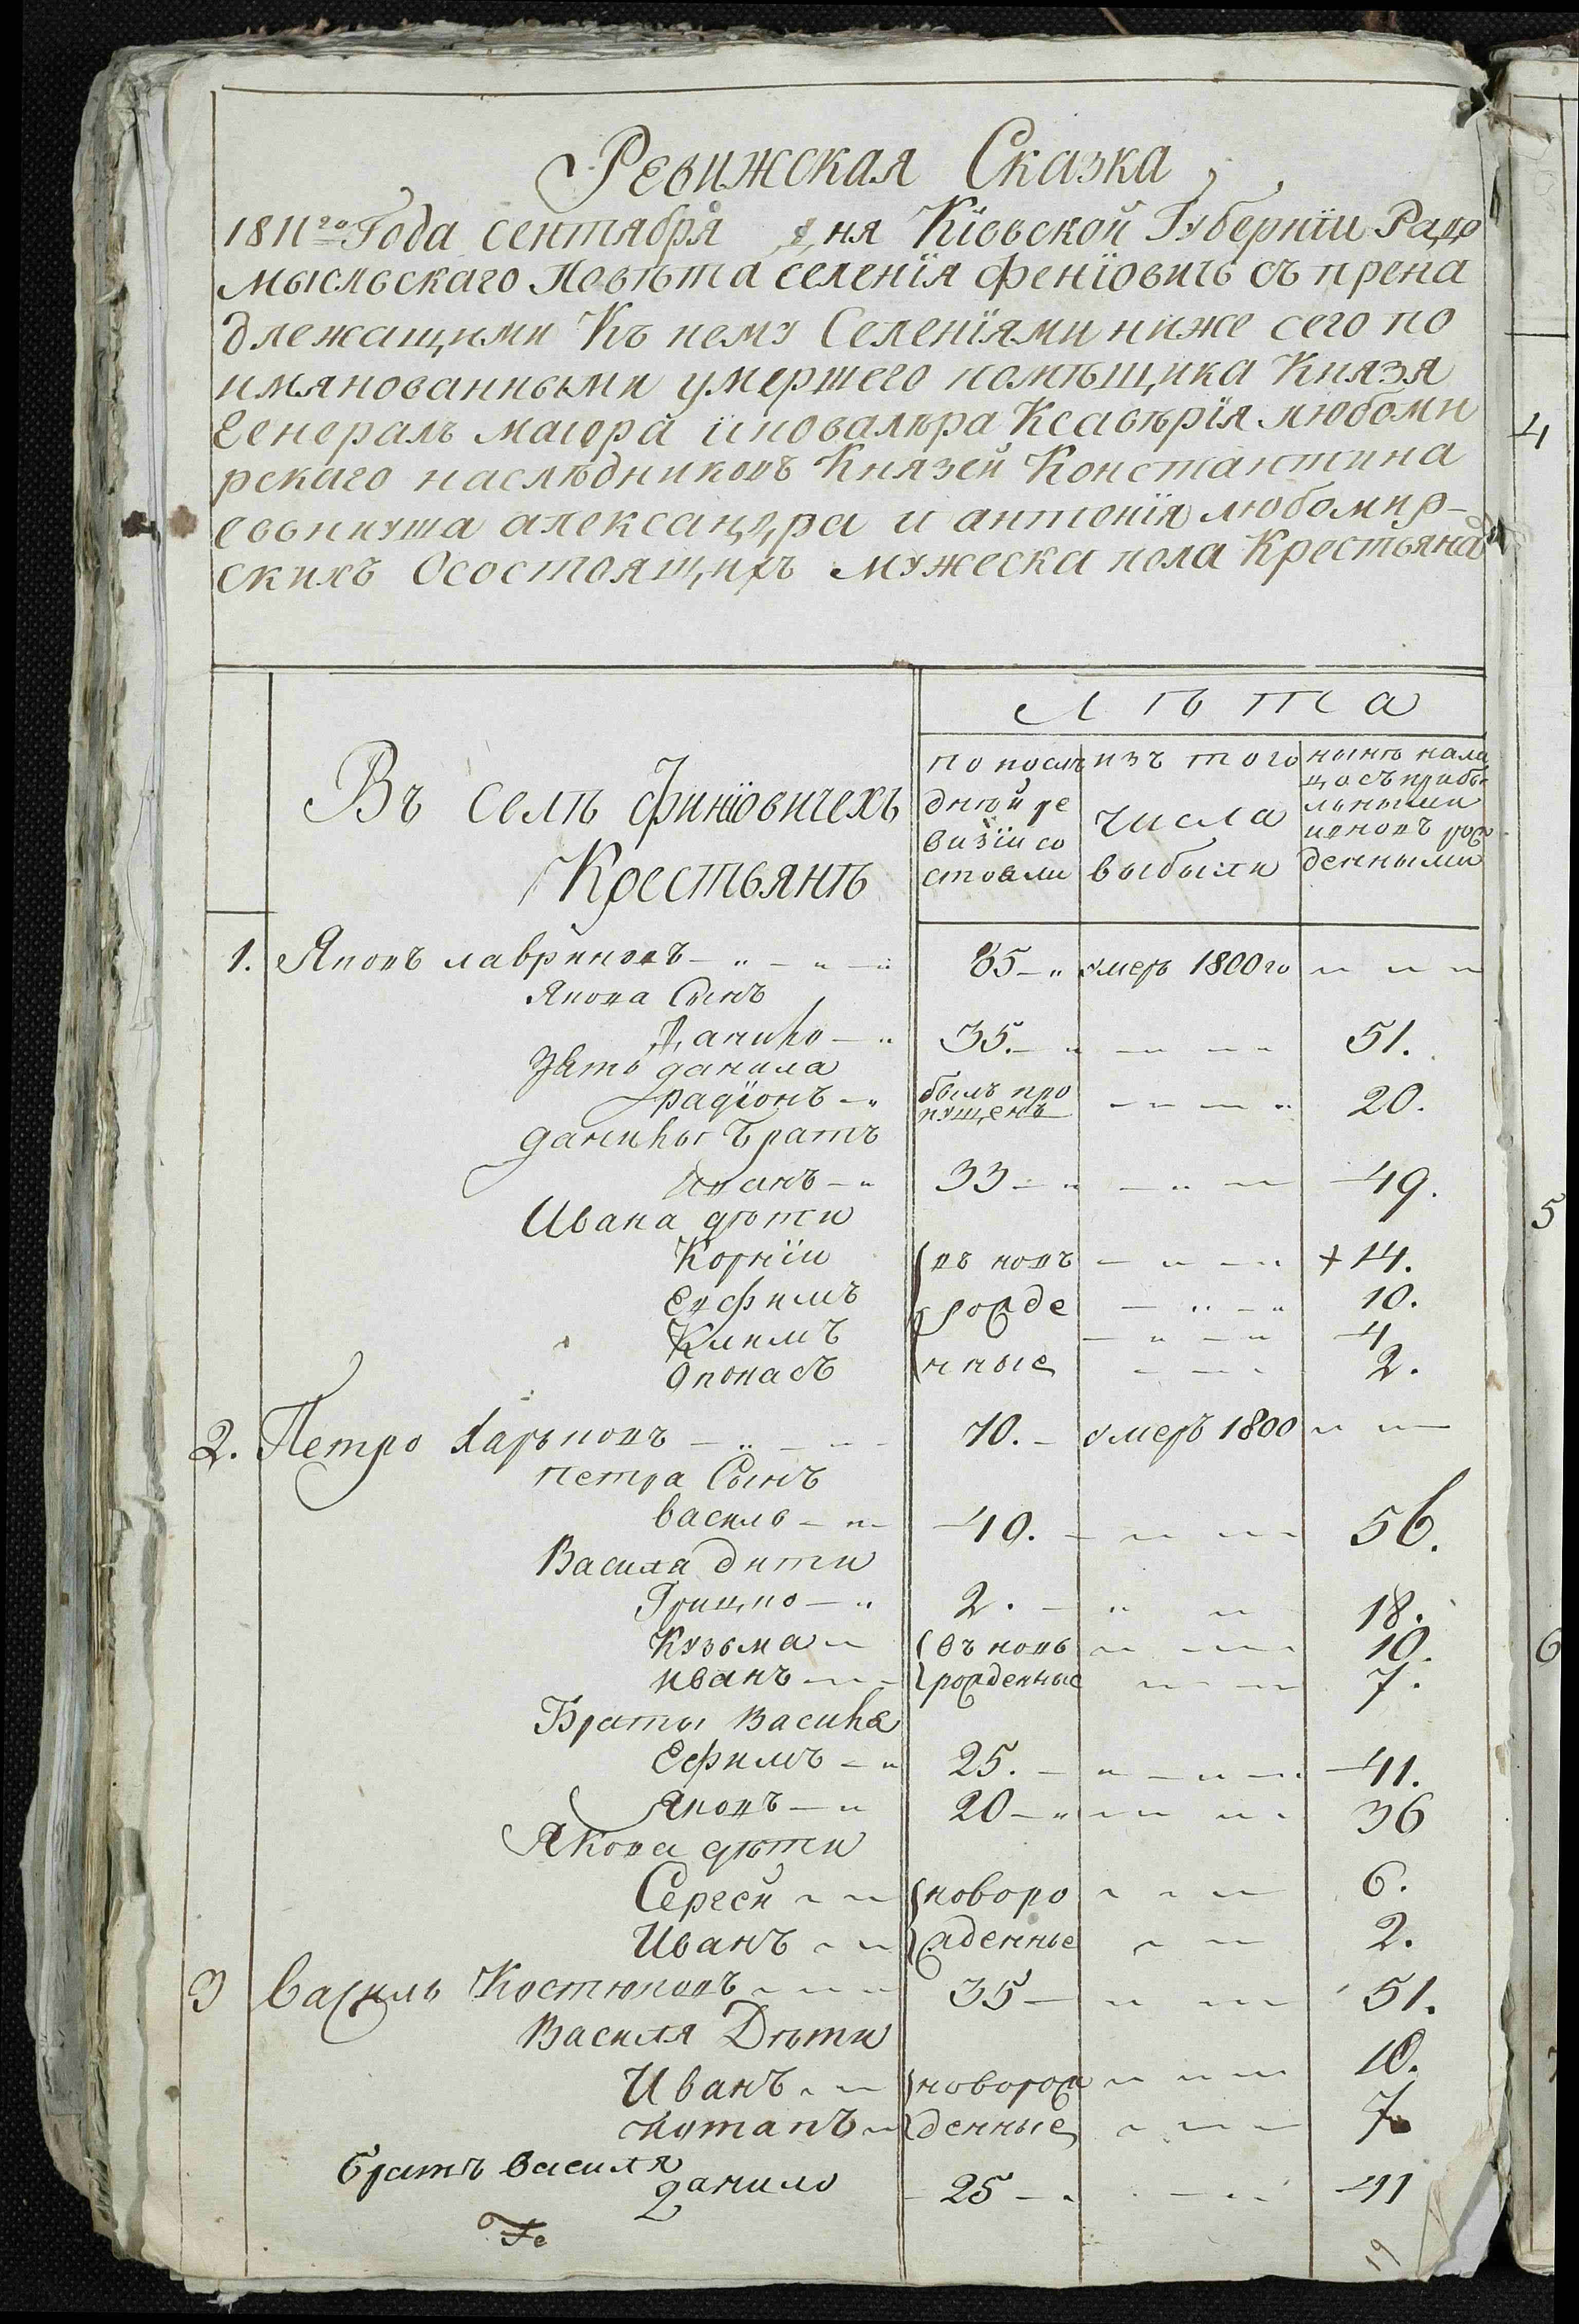 Ревижская Сказка
1811го Года сентября дня Кіевской Губерніи Радо
мысльскаго Повѣта селенія Феніовичь съ прена
длежащими Къ нему Селеніями ниже сего по
имянованными умершего помѣщика Князя
Генералъ маіора и ковалѣра Ксавѣрія любоми
рскаго наслѣдниковъ Князей Константина
евъникуша александра и антонія любомир-
скихъ Осостоящихъ мужеска пола Крестьянах
Лѣта
Въ селѣ Финіовичехъ
Крестьянъ
по послѣ
дней ре
визіи со
стояли
изъ того
числа
выбыли
нынѣ нали
цо съ прибы
лыми
и новъ рож
денными
1. Яковъ лавриновъ 85 умеръ 1800го
Якова Сынъ
Данило 35. 51.
Зять данила
радіонъ былъ про
пущенъ 20.
данилы братъ
Иванъ 33 49.
Ивана дѣти
Корніи въ новъ + 14.
Евфимъ рожде 10.
Климъ 4
Опонасъ нные 2.
2. Петро Карповъ 70. умеръ 1800
петра Сынъ
василь 40. 56.
Василя дити
Грицко 2. 18.
Кузьма въ новь 10.
иванъ рожденные 7.
Браты Василя
Ефимъ 25. 41.
Яковъ 20 36
Якова дѣти
Сергей новоро 6.
Иванъ жденные 2.
3 Василь Костюковъ 35 51.
Василя Дѣти
Иванъ новорож 10.
потапъ денные 7
братъ василя
данило 25 41
Ге
19
4
5
6
7